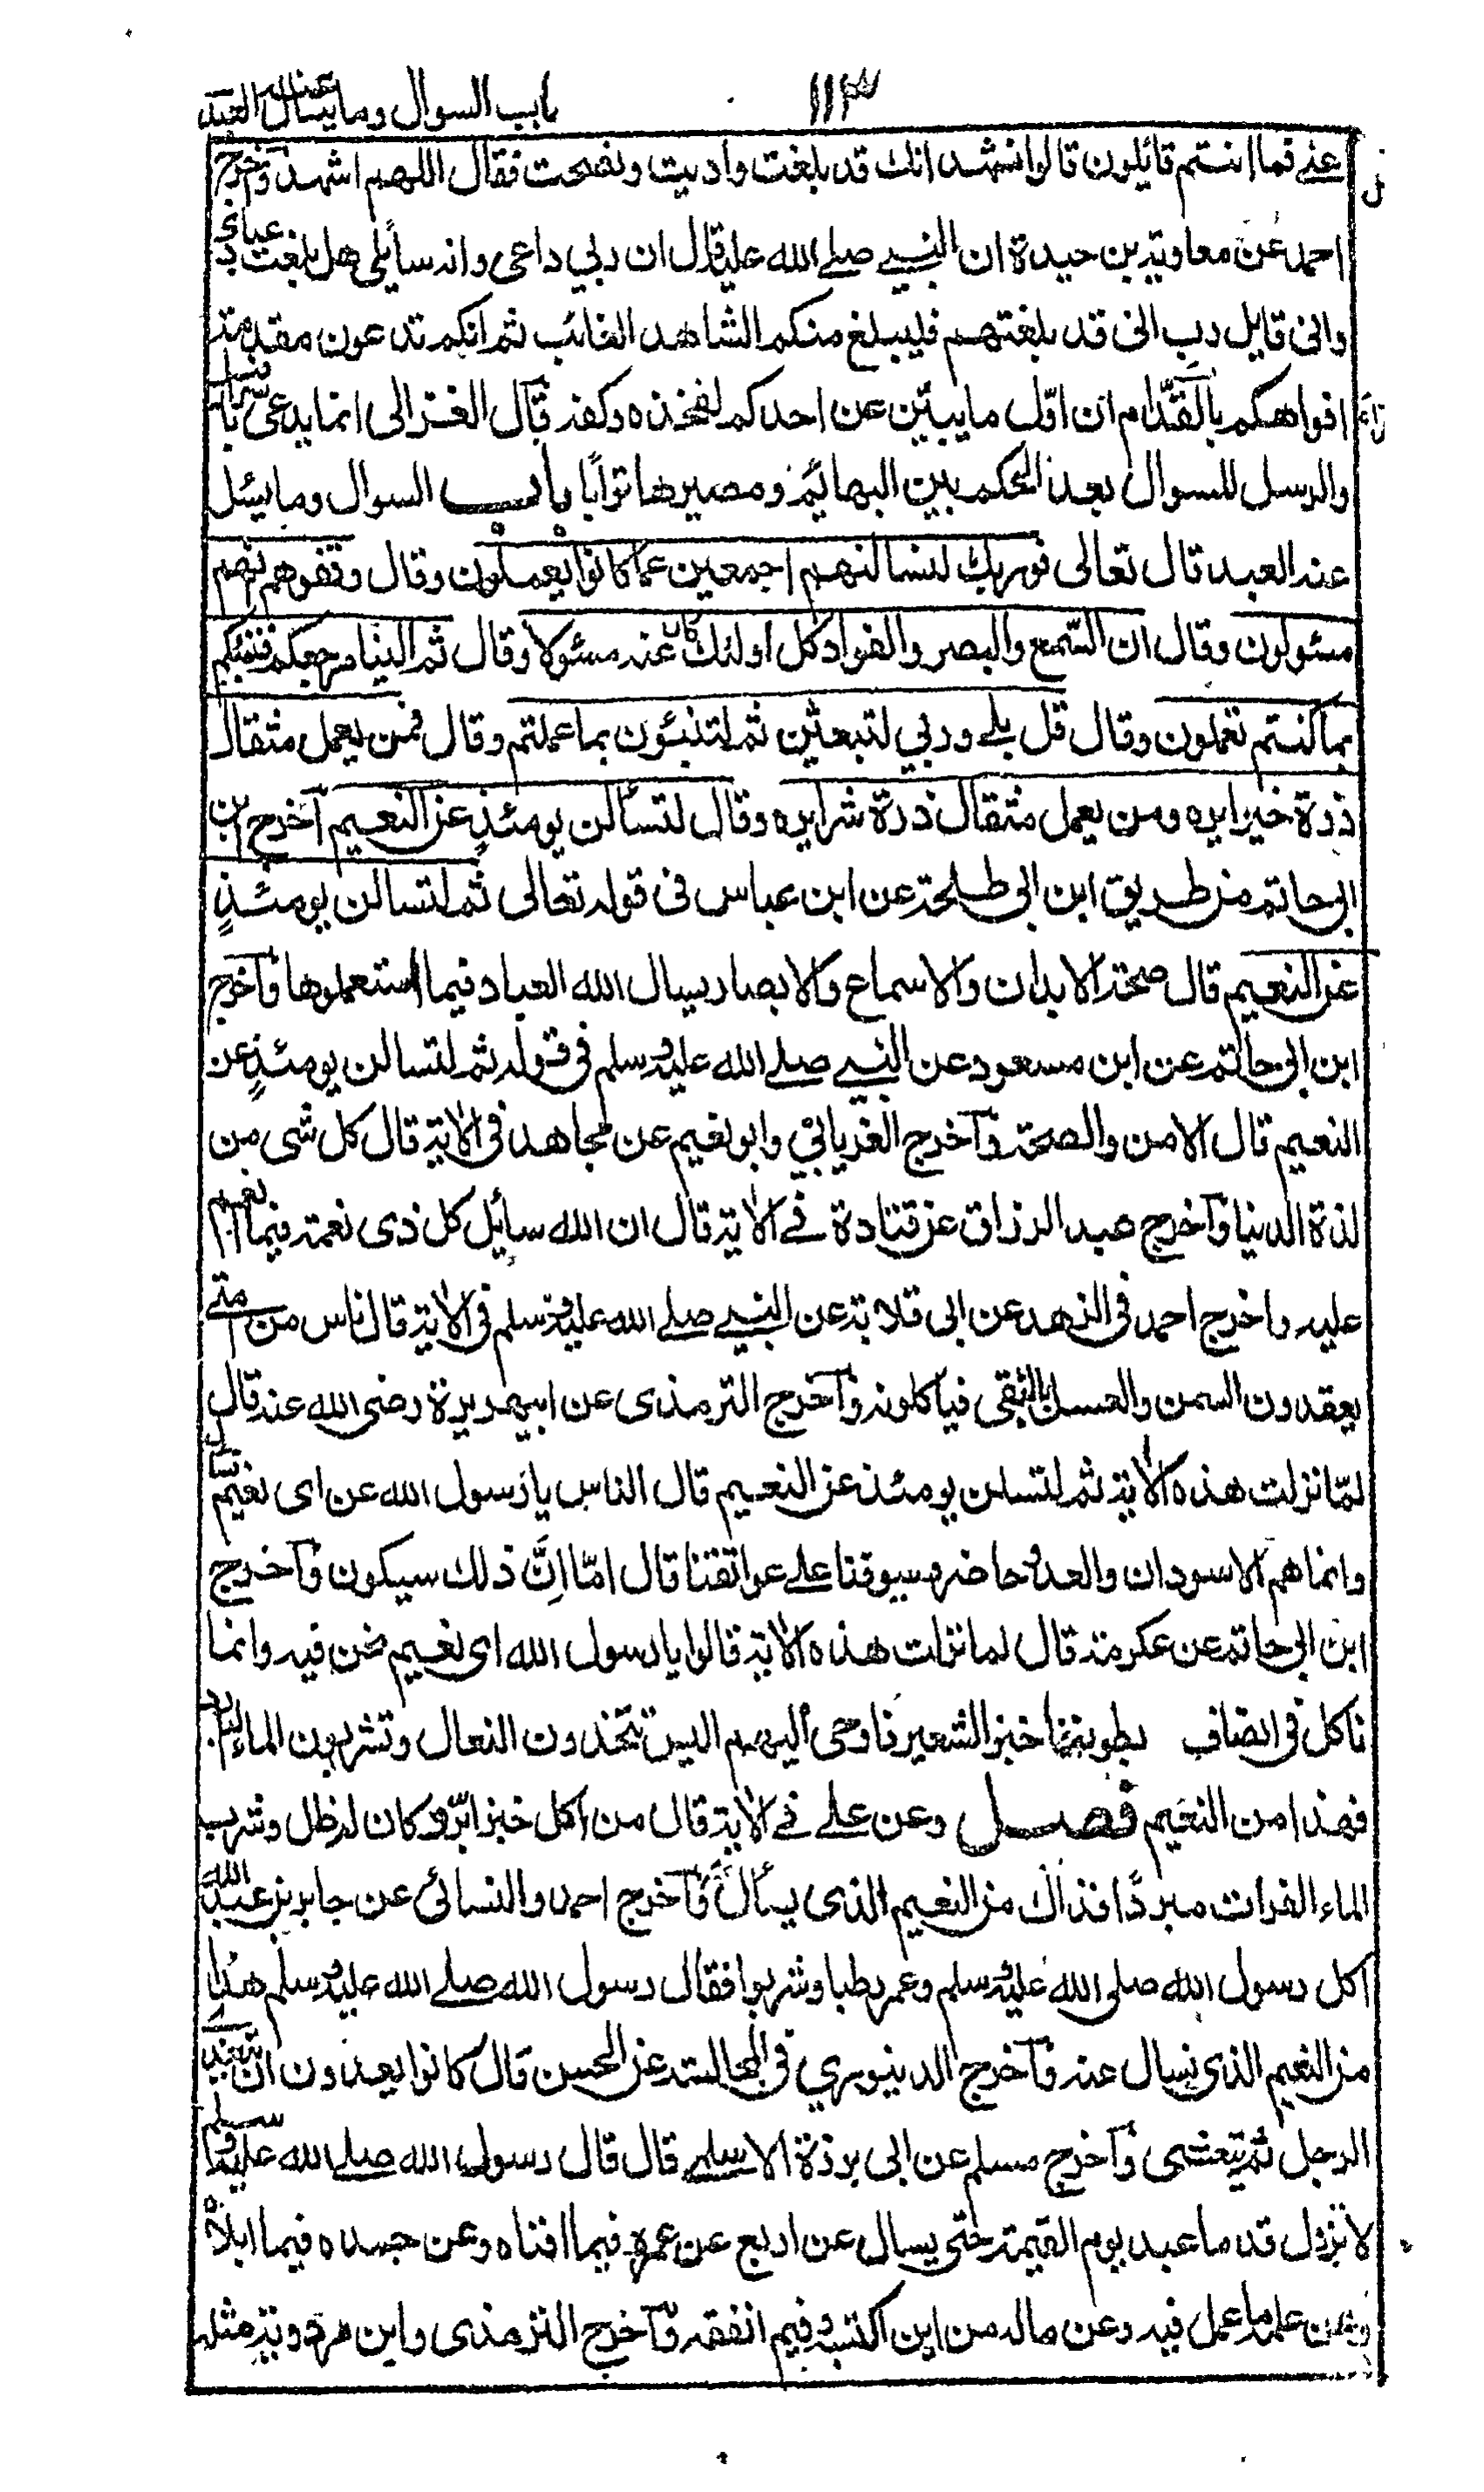 باب السوال وما يسال عنه العبد
١١٣
عني فما انتم قائلون قالوا نشهد انك قد بلغت واديت ونصحت فقال اللهم اشهد وآخرج
احمد عن معاوية بن حيدة ان النبي صلى الله عليه قال ان ربي داعي وانه سايلي هل بلغت عبادي
واني قايل رب اني قد بلغتهم فليبلغ منكم الشاهد الغائب ثم انكم تدعون مقدمة
افواهكم بالفدّام ان اوّل ما يبيّن عن احدكم لفخذه وكفه فصل قال الغزالي انما يدعى
والرسل للسوال بعد الحكم بين البهائم ومصيرها ترابًا باب السوال وما يسئل
عنه العبد قال تعالى فوربك لنسالنهم اجمعين عما كانوا يعملون وقال وقفوهم انهم
مسئولون وقال ان السّمع والبصر والفواد كل اولئك كان عنه مسئولا وقال ثم الينا مرجعكم فننبئكم
بما كنتم تعملون وقال قل بلى وربي لتبعثن ثم لتنبئون بما عملتم وقال فمن يعمل مثقال
ذرة خيرا يره ومن يعمل مثقال ذرة شرا يره وقال لتسألن يومئذٍ عن النعيم آخرج ابن
ابي حاتم من طريق ابن ابي طلحة عن ابن عباس في قوله تعالى ثم لتسالن يومئذٍ
عن النعيم قال صحة الابدان والاسماع والابصار يسال الله العباد فيما استعملوها وآخرج
ابن ابي حاتم عن ابن مسعود عن النبي صلى الله عليه وسلم في قوله ثم لتسالن يومئذٍ عن
النعيم قال الامن والصحة وآخرج الفريابي وابو نعيم عن مجاهد في الاية قال كل شي من
لذة الدنيا وآخرج عبد الرزاق عن قتادة في الاية قال ان الله سايل كل ذي نعمة فيما انعم
عليه واخرج احمد في الزهد عن ابي قلابة عن النبي صلى الله عليه وسلم في الاية قال ناس من امتي
يعقدون السمن والعسل بالنقي فياكلونه وآخرج الترمذي عن ابيهريرة رضي الله عنه قال
لمّا نزلت هذه الاية ثم لتسالن يومئذ عن النعيم قال الناس يا رسول الله عن اي نعيم نسال
وانما هم الاسودان والعدو حاضر وسيوفنا على عواتقنا قال امّا اِنَّ ذلك سيكون وآخرج
ابن ابي حاتم عن عكرمة قال لما نزلت هذه الاية قالوا يا رسول الله اي نعيم نحن فيه وانما
ناكل في انصاف بطوننا خبز الشعير فاوحى اليهم اليس تتخذون النعال وتشربون الماء البارد
فهذا من النعيم فصل وعن علي في الاية قال من اكل خبز البرّ وكان له ظل وشرب
الماء الفرات مبردًا فذاك من النعيم الذي يسأل عنه وآخرج احمد والنسائي عن جابر بن عبد الله
اكل رسول الله صلى الله عليه وسلم وعمر رطبا وشربوا فقال رسول الله صلى الله عليه وسلم هذا
من النعيم الذي نسال عنه وآخرج الدينوري في المجالسة عن الحسن قال كانوا يعدون ان يتغدى
الرجل ثم يتعشى وآخرج مسلم عن ابي برزة الاسلمي قال قال رسول الله صلى الله عليه وسلم
لا تزول قدما عبد يوم القيمة حتى يسال عن اربع عن عمره فيما افناه وعن جسده فيما ابلاه
وعن علمه ما عمل فيه وعن ماله من اين اكتسبه وفيم انفقه وآخرج الترمذي وابن مردوية مثله